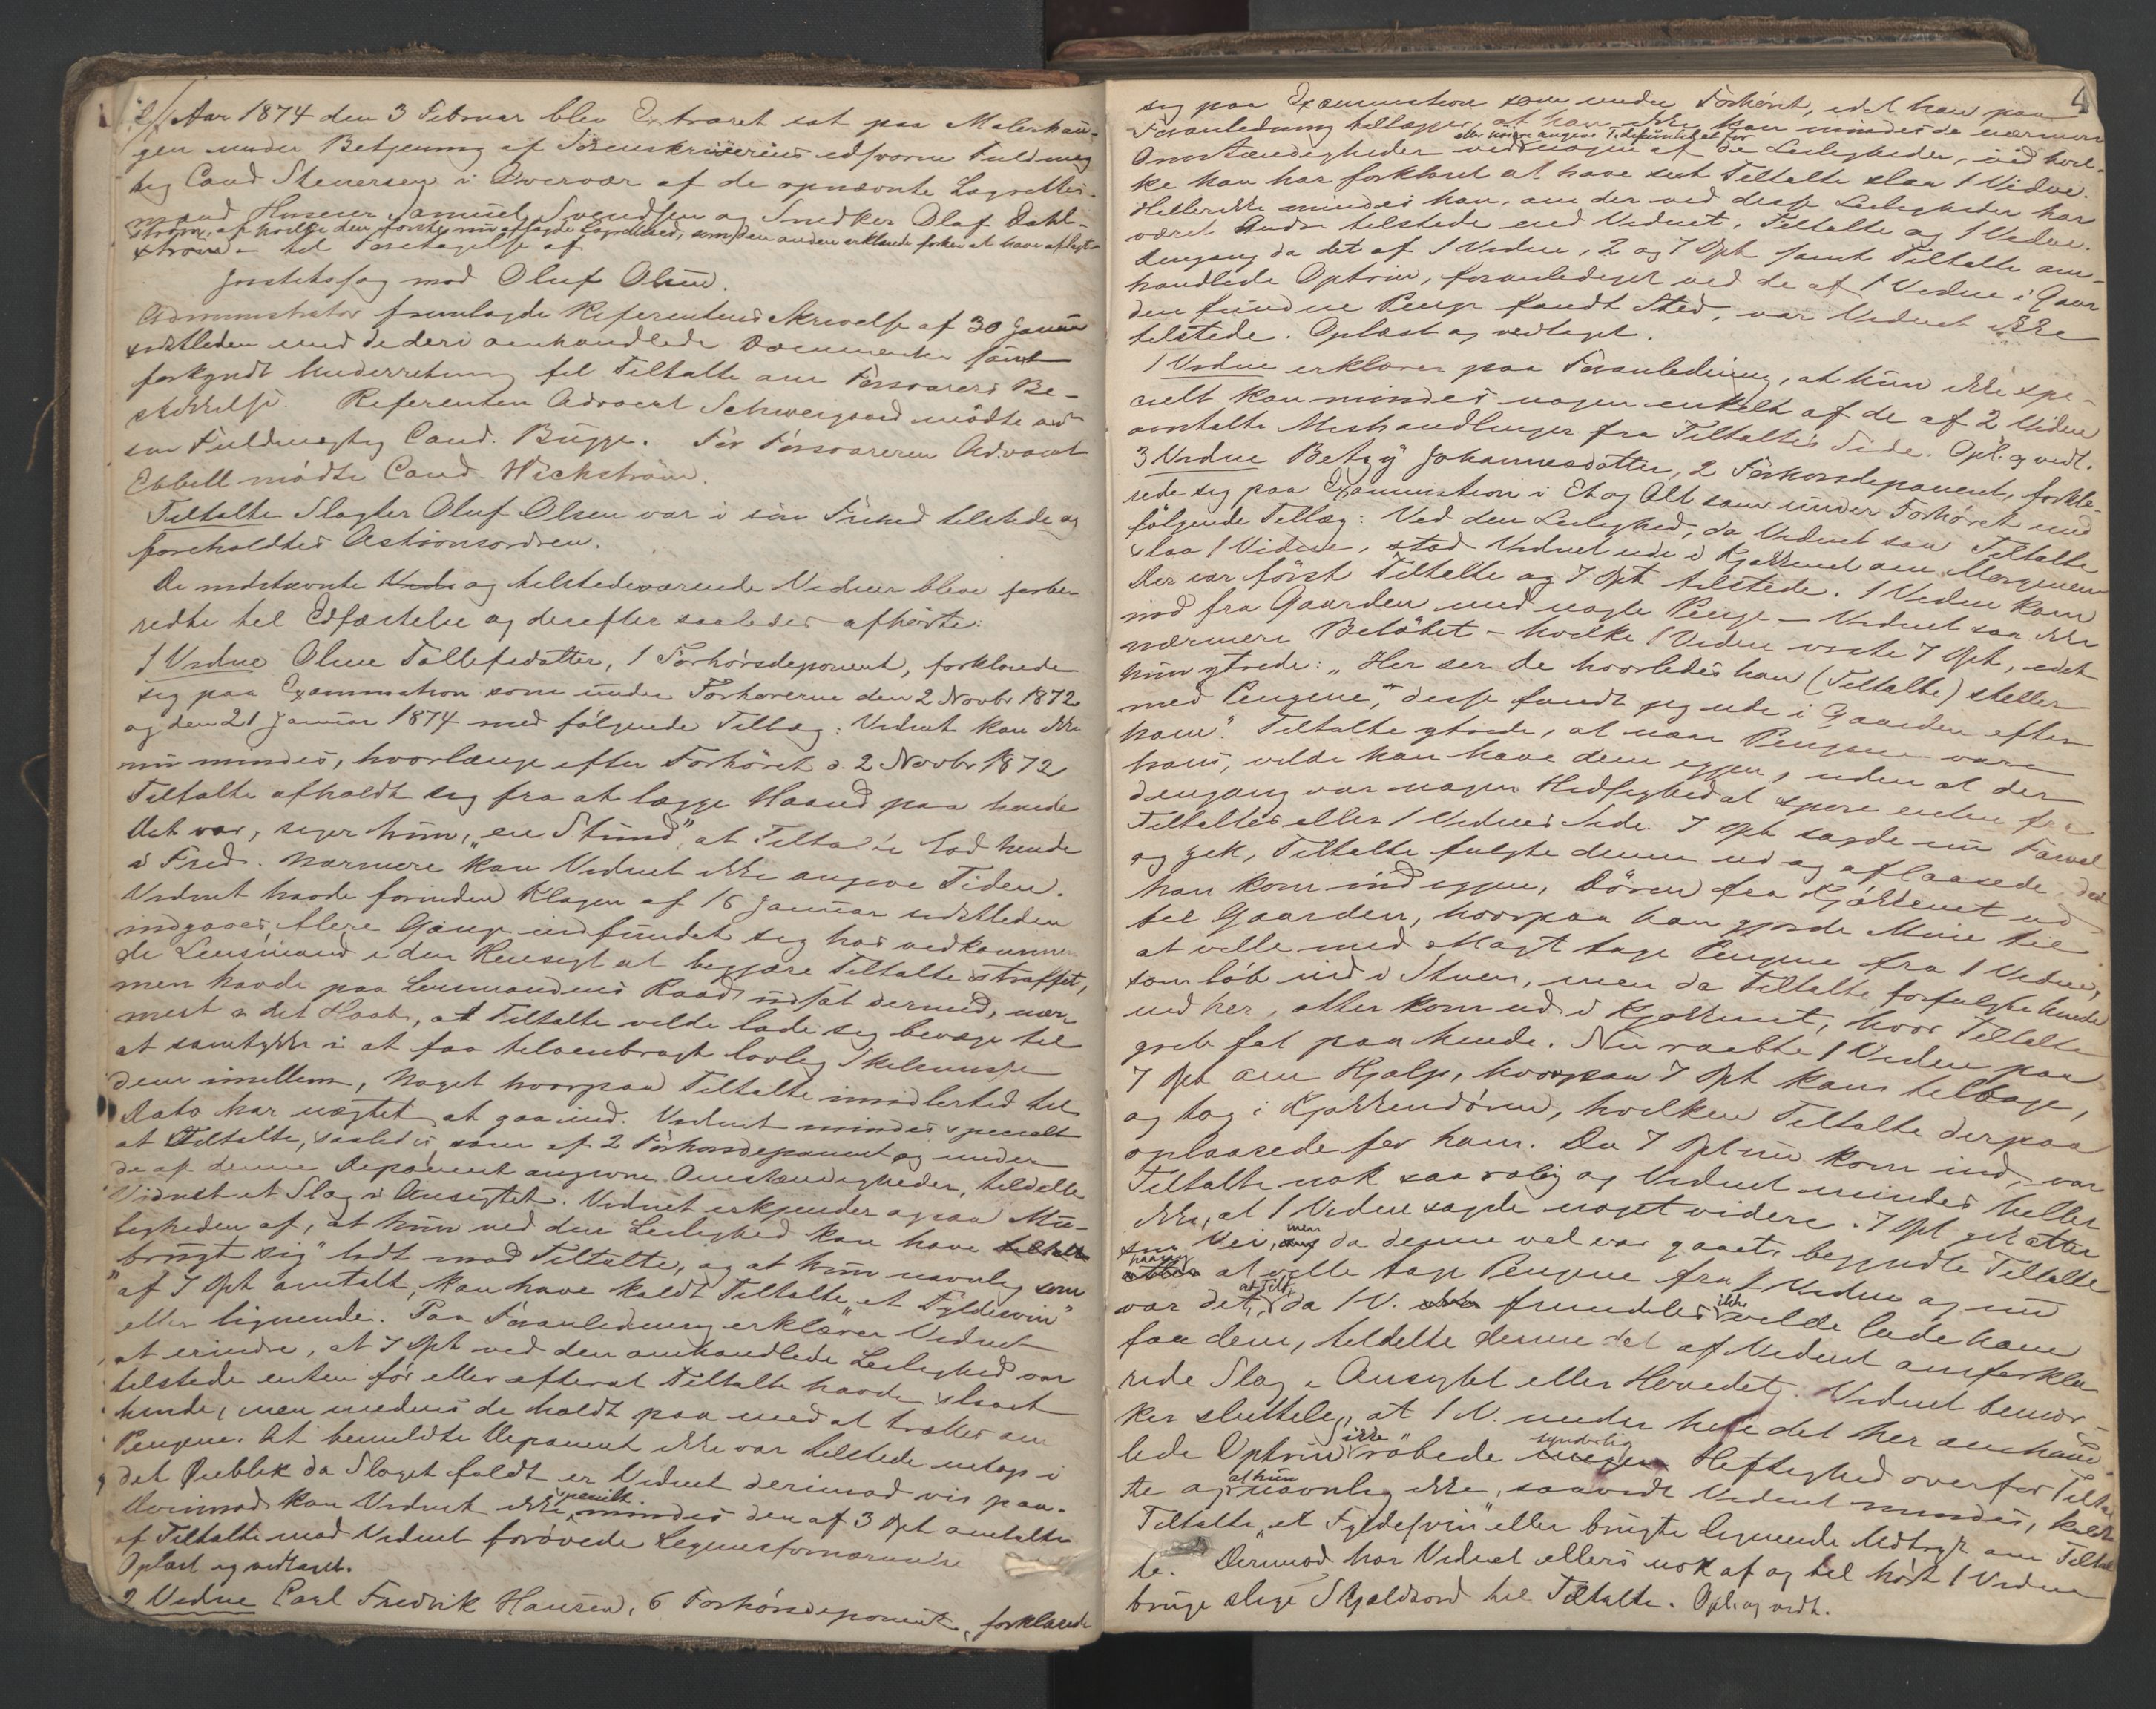 2/ Aar 1874 den 3 Februar blev Extraret sat paa Malerhau-
gen under Betjening af Sorenskriverens edsvorne Fuldmæg
tig Cand Stenersen i Overvær af de opnævnte Lagrettes-
mænd Huseier Samuel Svendsen og Snedker Olaf Dahl-
strøm, af hvilke den første nu aflagde Lagretteed, som den anden erklærede forhen at have aflagt
– til Foretagelse af
Justitssag mod Oluf Olsen.
Administrator fremlagde Referentens Skrivelse af 30 Januar
sidstleden med de deri omhandlede Documenter samt
forkyndt Underretning til Tiltalte om Forsvarers Be-
skikkelse. Referenten Advocat Schweigaard mødte ved
sin Fuldmægtig Cand. Bugge. For Forsvareren Advocat
Ebbell mødte Cand. Wickstrøm.
Tiltalte Slagter Oluf Olsen var i sin Frihed tilstede og
foreholdtes Actionsordren.
De indstævnte Vid og tilstedeværende Vidner bleve forbe-
redte til Edfæstelse og derefter saaledes afhørte:
1 Vidne Oline Tollefsdatter, 1 Forhørsdeponent, forklarede
sig paa Examination som under Forhørerne den 2 Novbr 1872
og den 21 Januar 1874 med følgende Tillæg: Vidnet kan ikke
nu mindes, hvorlænge efter Forhøret d. 2 Novbr 1872
Tiltalte afholdt sig fra at lægge Haand paa hende
Det var, siger hun, „en Stund", at Tiltalte lod hende
i Fred. Nærmere kan Vidnet ikke angive Tiden.
Vidnet havde forinden Klagen af 16 Januar sidstleden
indgaves, flere Gange indfundet sig hos vedkommen
de Lensmand i den Hensigt at begjære Tiltalte straffet,
men havde paa Lensmandens Raad undladt dermed, nær-
mest i det Haab, at Tiltalte vilde lade sig bevæge til
at samtykke i at faa tilveiebragt lovlig Skilsmisse
dem imellem, Noget hvorpaa Tiltalte imidlertid til
Dato har nægtet at gaa ind. Vidnet mindes specielt
at Tiltalte, saaledes som af 2 Forhørsdeponent og under
de af denne Deponent angivne Omstændigheder, tildelte
Vidnet et Slag i Ansigtet. Vidnet erkjender ogsaa Mu-
ligheden af, at hun ved den Leilighed kan have
brugt sig" lidt mod Tiltalte, og at hun navnlig som
af 7 Dpt omtalt, kan have kaldt Tiltalte „et Fyldesvin"
eller lignende. Paa Foranledning erklærer Vidnet
at erindre, at 7 Dpt ved den omhandlede Leilighed var
tilstede enten før eller efterat Tiltalte havde slaaet
hende, men medens de holdt paa med at trættes om
Pengene. At bemeldte Deponent ikke var tilstede netop i
det Øieblik da Slaget faldt er Vidnet derimod vis paa.
Derimod kan Vidnet ikke specielt mindes den af 3 Dpt omtalte
af Tiltalte mod Vidnet forøvede Legemsfornærmelse
Oplæst og vedtaget.
2 Vidne Carl Fredrik Hansen, 6 Forhørsdeponent, forklarede
4
sig paa Examination som under Forhøret, idet han paa
Foranledning tillægger, at han ikke kan mindes de nærmere
Omstændigheder eller nøiere angive Tidspunktet for ved nogen af de Leiligheder, ved hvil-
ke han har forklaret at have seet Tiltalte slaa 1 Vidne.
Heller ikke mindes han, om der ved disse Leiligheder har
været Andre tilstede end Vidnet, Tiltalte og 1 Vidne.
Dengang da det af 1 Vidne, 2 og 7 Dpt samt Tiltalte om-
handlede Optrin, foranlediget ved de af 1 Vidne i Gaar
den fundne Penge fandt Sted, var Vidnet ikke
tilstede. Oplæst og vedtaget.
1 Vidne erklærer paa Foranledning, at hun ikke spe-
cielt kan mindes nogen enkelt af de af 2 Vidne
omtalte Mishandlinger fra Tiltaltes Side. Opl. og vedt.
3 Vidne Betzy Johannesdatter, 2 Forhørsdeponent, forkla-
rede sig paa Examination i Et og Alt som under Forhøret med
følgende Tillæg: Ved den Leilighed, da Vidnet saa Tiltalte
slaa 1 Vidne, stod Vidnet ude i Kjøkkenet om Morgenen
Der var først Tiltalte og 7 Dpt tilstede. 1 Vidne kom
ind fra Gaarden med nogle Penge – Vidnet saa ikke
nærmere Beløbet – hvilke 1 Vidne viste 7 Dpt, idet
hun ytrede: „Her ser De hvorledes han (Tiltalte) steller
med Pengene", disse fandt jeg ude i Gaarden efter
ham." Tiltalte ytrede, at naar Pengene vare
hans, vilde han have dem igjen, uden at der
dengang var nogen Hidsighed at spore enten fra
Tiltaltes eller 1 Vidnes Side. 7 Dpt sagde nu Farvel
og gik, Tiltalte fulgte denne ud og aflaasede, da
han kom ind igjen, Døren fra Kjøkkenet ud
til Gaarden, hvorpaa han gjorde Mine til
at ville med Magt tage Pengene fra 1 Vidne,
som løb ind i Stuen, men da Tiltalte forfulgte hende
ind her, atter kom ud i Kjøkkenet, hvor Tiltalte
greb fat paa hende. Nu raabte 1 Vidne paa
7 Dpt om Hjælp, hvorpaa 7 Dpt kom tilbage,
og tog i Kjøkkendøren, hvilken Tiltalte derpaa
oplaasede for ham. Da 7 Dpt nu kom ind, var
Tiltalte nok saa rolig og Vidnet mindes heller
ikke, at 1 Vidne sagde noget videre. 7 Dpt gik atter
sin Vei, men da denne vel var gaaet, begyndte Tiltalte
paany at ville tage Pengene fra 1 Vidne og nu
var det, at Tilt. da 1 V. fremdeles ikke vilde lade ham
faa dem, tildelte denne det af Vidnet omforkla-
rede Slag i Ansigtet eller Hovedet. Vidnet bemær-
ker sluttelig, at 1 V. under hele det her omhand-
lede Optrin ikke robede synderlig Heftighed overfor Tiltal
te og at hun navnlig ikke, saavidt Vidnet mindes, kaldte
Tiltalte „et Fyldesvin" eller brugte lignende Udtryk om Tiltal
te. Derimod har Vidnet ellers nok af og til hørt 1 Vidne
bruge slige Skjældsord til Tiltalte. Opl. og vedt.